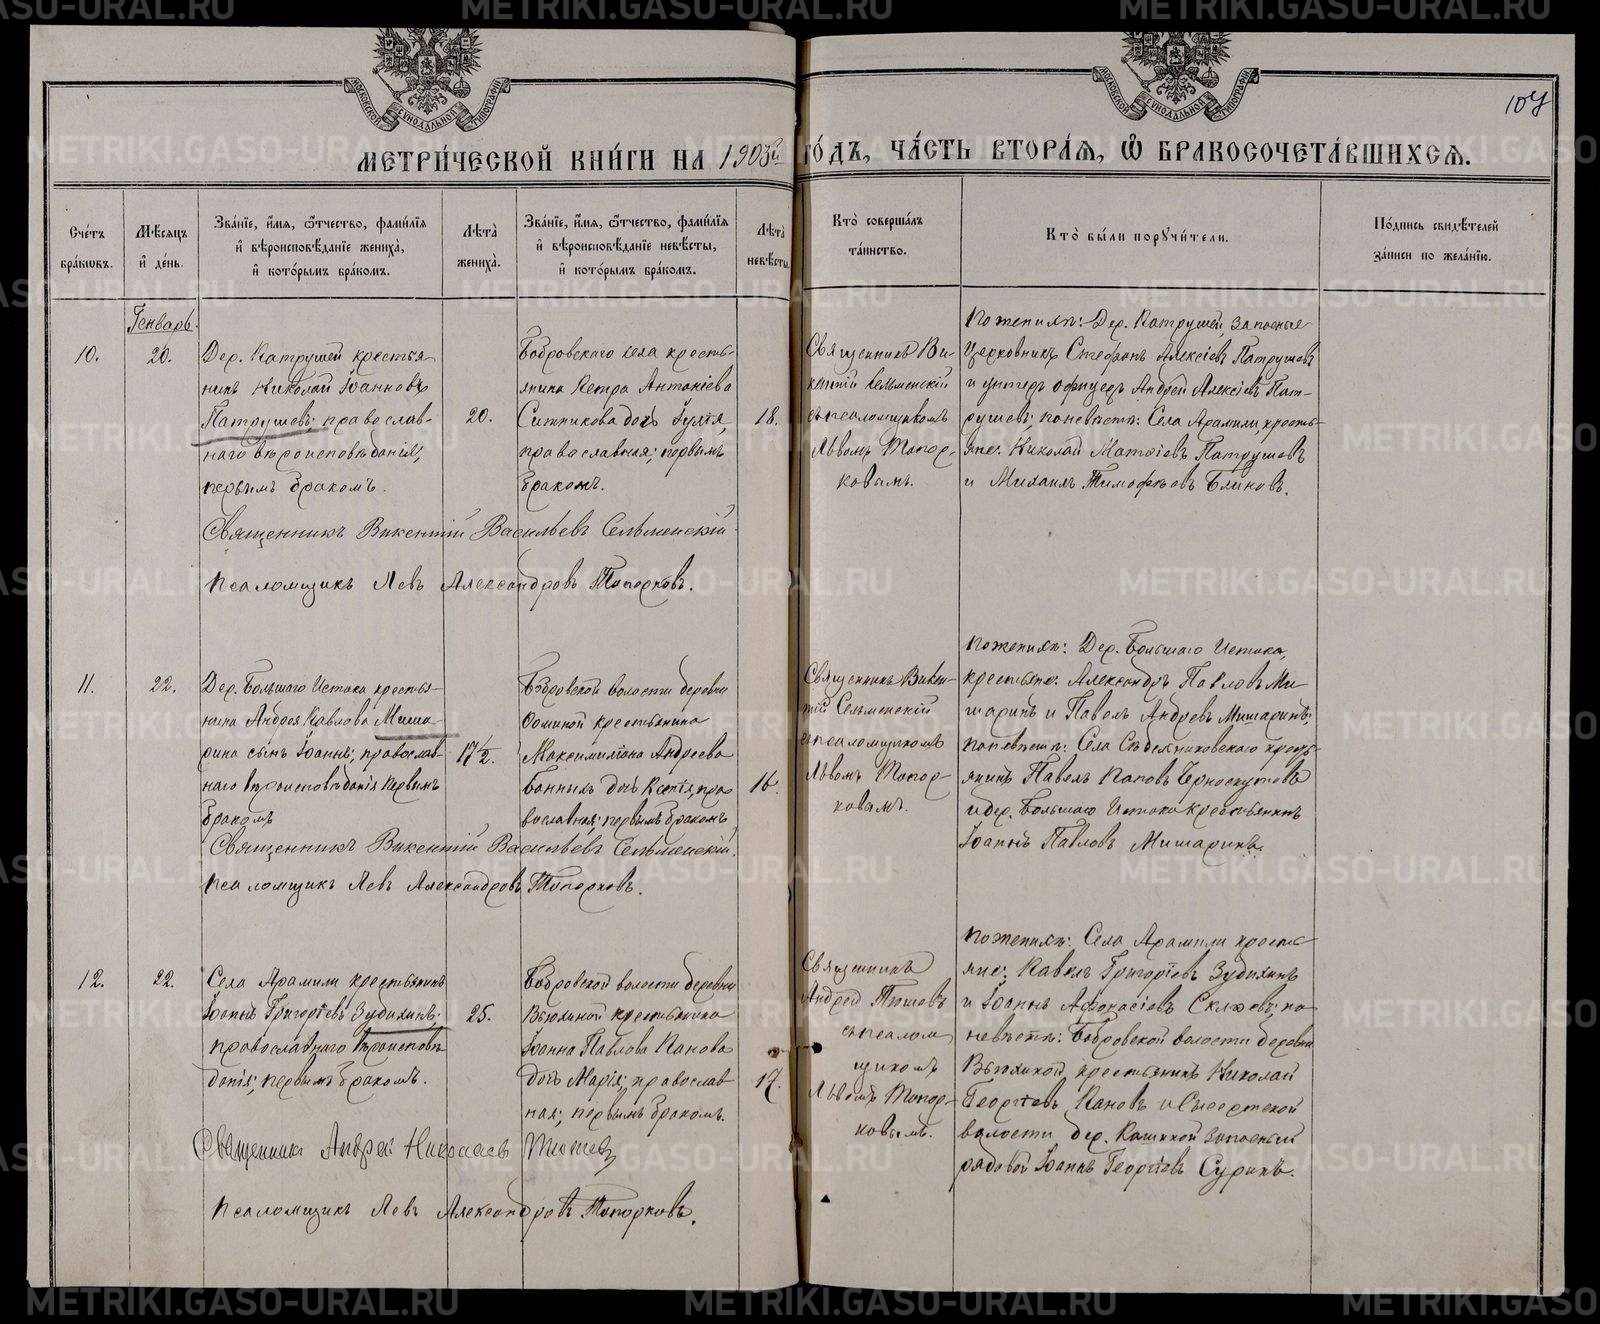 METRIKI.GASO-URAL.RU
МОСКОВСКОЙ СѴНОДАЛЬНОЙ ТИПОГРАФІИ
МОСКОВСКОЙ СѴНОДАЛЬНОЙ ТИПОГРАФІИ
107
МЕТРИ́ЧЕСКОЙ КНИ́ГИ НА 1903й ГО́ДЪ, ЧА́СТЬ ВТОРА́Я, Ѿ БРАКОСОЧЕТА́ВШИХСЯ.
Сче́тъ бра́кωвъ.
Мѣ́сяцъ и҆ де́нь.
Зва́нїе, и҆́мя, ѻ҆́тчество, фами́лїя и҆ вѣроисповѣ́данїе жениха̀, и҆ кото́рымъ бра́комъ.
Лѣ́та жениха̀.
Зва́нїе, и҆́мя, ѻ҆́тчество, фами́лїя и҆ вѣроисповѣ́данїе невѣ́сты, и҆ кото́рымъ бра́комъ.
Лѣ́та невѣ́сты.
Кто̀ соверша́лъ та́инство.
Кто̀ бы́ли порꙋчи́тели.
По́дпись свидѣ́телей за́писи по жела́нїю.
Генварь.
10.
20.
Дер. Патрушей крестья
нинъ Николай Іоанновъ
Патрушевъ; православ-
наго вѣроисповѣданія,
первымъ бракомъ.
20.
Бобровскаго села кресть-
янина Петра Антоніева
Ситникова дочь Іулія,
православная; первымъ
бракомъ.
18.
Священникъ Ви-
кентій Сельменскій
съ псаломщикомъ
Львомъ Топор-
ковымъ.
По женихѣ: Дер. Патрушей запасные
церковникъ Стефанъ Алексіевъ Патрушевъ
и унтеръ офицеръ Андрей Алексіевъ Пат-
рушевъ; по невѣстѣ: Села Арамили, кресть-
яне: Николай Матѳіевъ Патрушевъ
и Михаилъ Тимофѣевъ Блиновъ.
Священникъ Викентій Васильевъ Сельменскій
Псаломщикъ Левъ Александровъ Топорковъ.
11.
22.
Дер. Большаго Истока кресть-
нина Андрея Павлова Миша
рина сынъ Іоаннъ; православ-
наго вѣроисповѣданія первымъ
бракомъ
17½.
Бобровской волости деревни
Фоминой крестьянина
Максимиліана Андреева
Банныхъ дочь Ксенія, пра
вославная; первымъ бракомъ
16.
Священникъ Викен-
тій Сельменскій
съ псаломщикомъ
Львомъ Топор-
ковымъ.
По женихѣ: Дер. Большаго Истока,
крестьяне: Александръ Павловъ Ми-
шаринъ и Павелъ Андреевъ Мишаринъ;
по невѣстѣ: Села Сѣдельниковскаго кресть-
янинъ Павелъ Черноскутовъ
и дер. Большаго Истока крестьянинъ
Іоаннъ Павловъ Мишаринъ.
Священникъ Викентій Васильевъ Сельменскій.
Псаломщикъ Левъ Александровъ Топорковъ.
12.
22.
Села Арамили крестьянинъ
Іоаннъ Григоріевъ Зудихинъ;
православнаго вѣроисповѣ
данія; первымъ бракомъ.
25.
Бобровской волости деревни
Вьюхиной крестьянина
Іоанна Павлова Панова
дочь Марія; православ
ная; первымъ бракомъ.
17.
Священникъ
Андрей Тюшевъ
съ псалом
щикомъ
Львомъ Топор-
ковымъ.
По женихѣ: Села Арамили кресть
яне: Павелъ Григоріевъ Зудихинъ
и Іоаннъ Афанасіевъ; по
невѣстѣ: Бобровской волости деревни
Вьюхиной крестьянинъ Николай
Георгіевъ Пановъ и Сысертской
волости дер. Кашиной запасный
рядовой Іоаннъ Георгіевъ Суринъ.
Священникъ Андрей Николаевъ Тюшевъ
Псаломщикъ Левъ Александровъ Топорковъ.